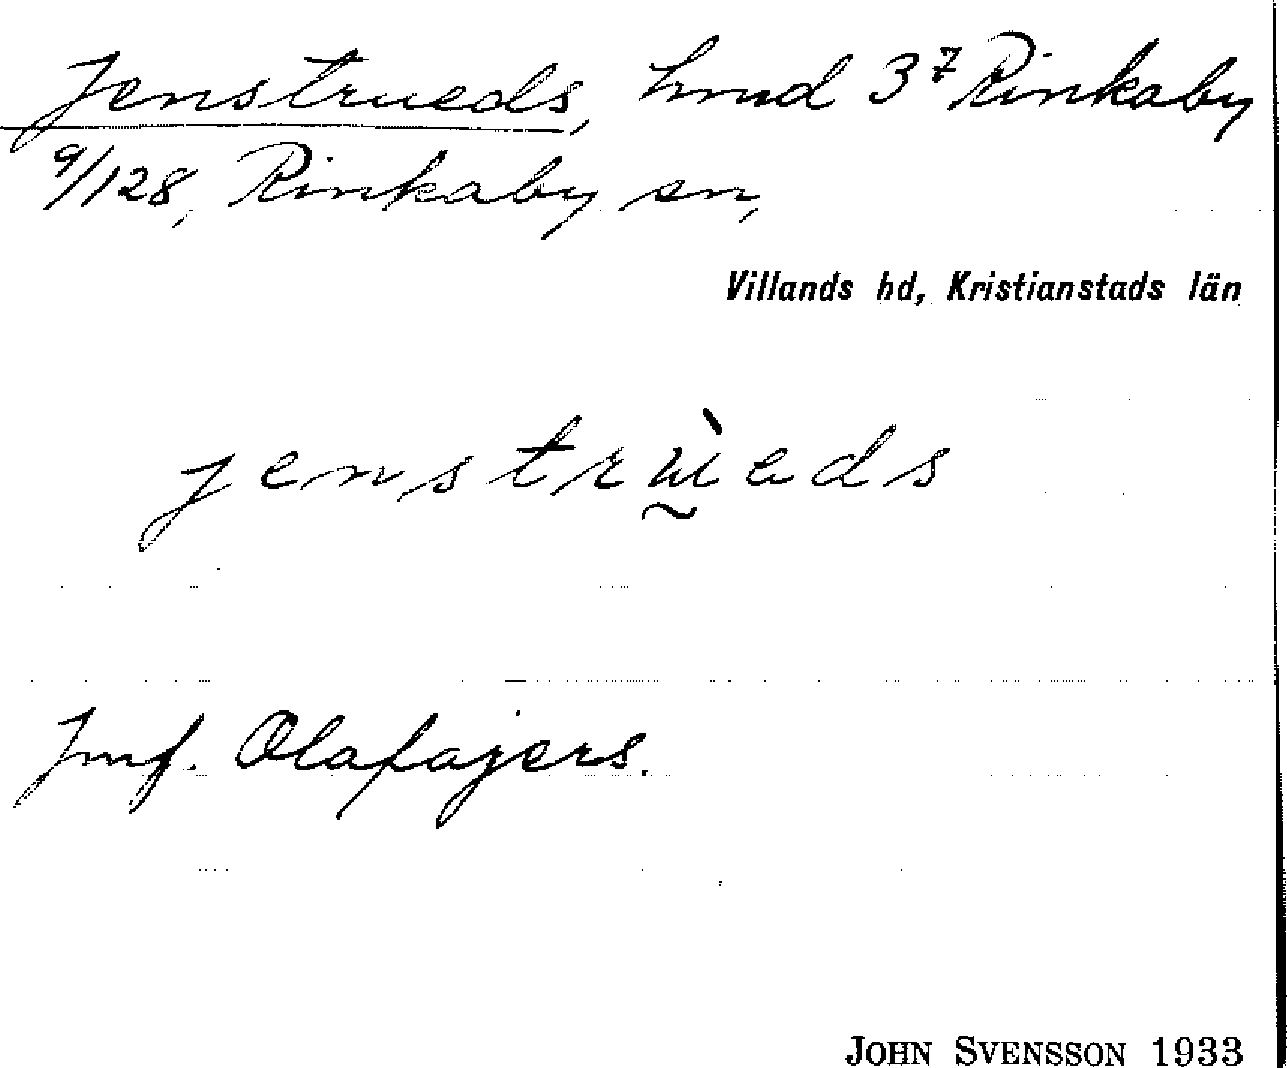 Jenstrueds, hmd 3⁷ Rinkaby
9/128, Rinkaby sn,
Villands hd, Kristianstads län
jenstrùeds
Jmf. Olafajers.
JOHN SVENSSON 1933